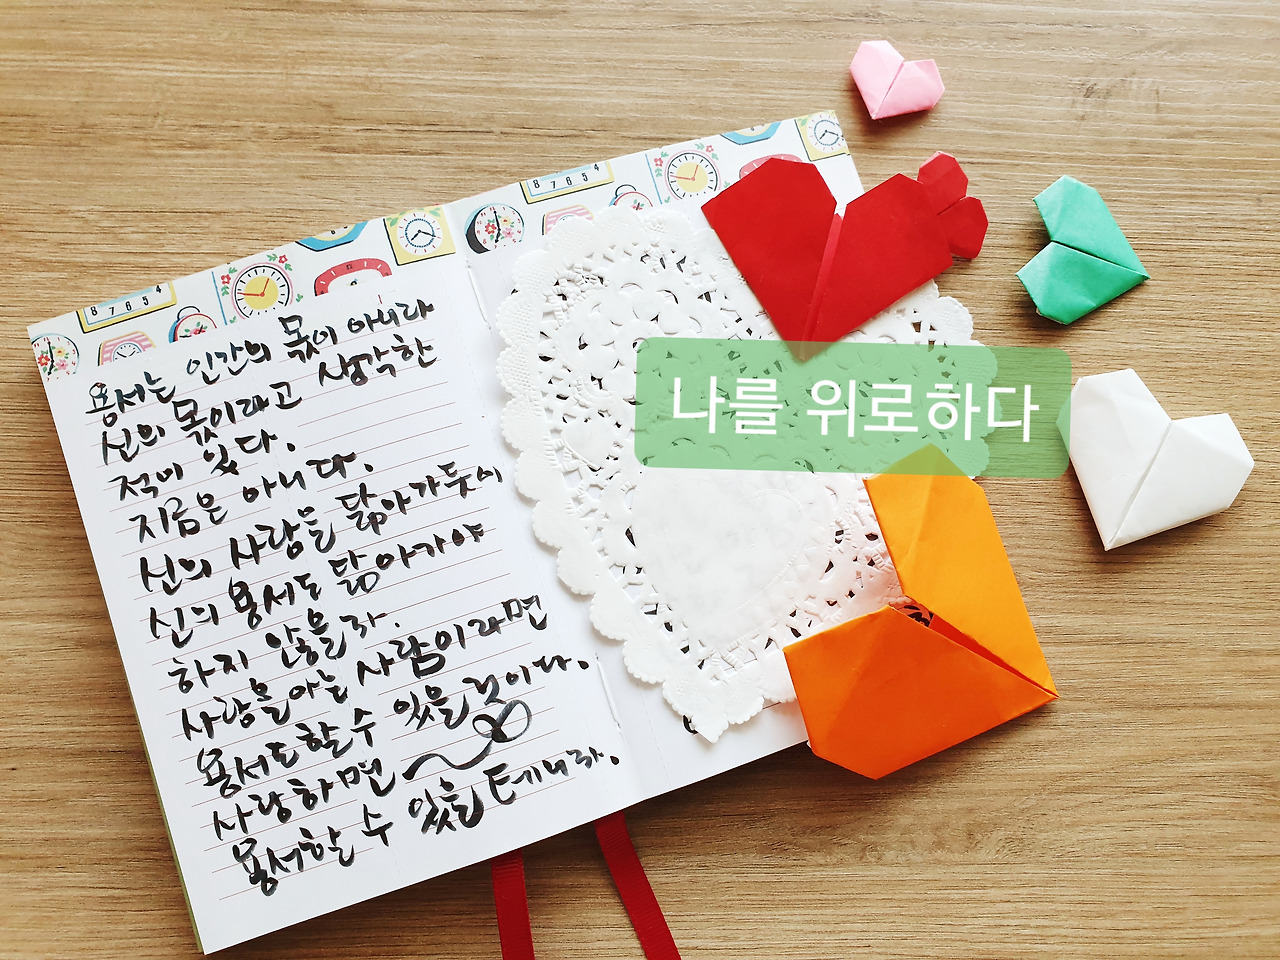 용서는 인간의 몫이 아니라
신의 몫이라고 생각한
적이 있다.
지금은 아니다.
신의 사랑을 닮아가듯이
신의 용서도 닮아가야
하지 않을까.
사랑을 아는 사람이라면
용서도 할 수 있을 것이다.
사랑하면
용서할 수 있을 테니까.
나를 위로하다
8 7 6 5 4
8 7 6 5 4